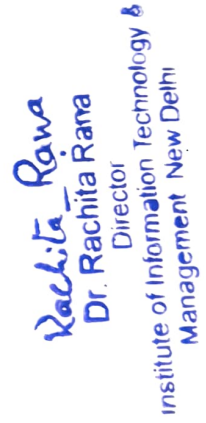 Rachita Rana
Dr. Rachita Rana
Director
Institute of Information Technology &
Management New Delhi